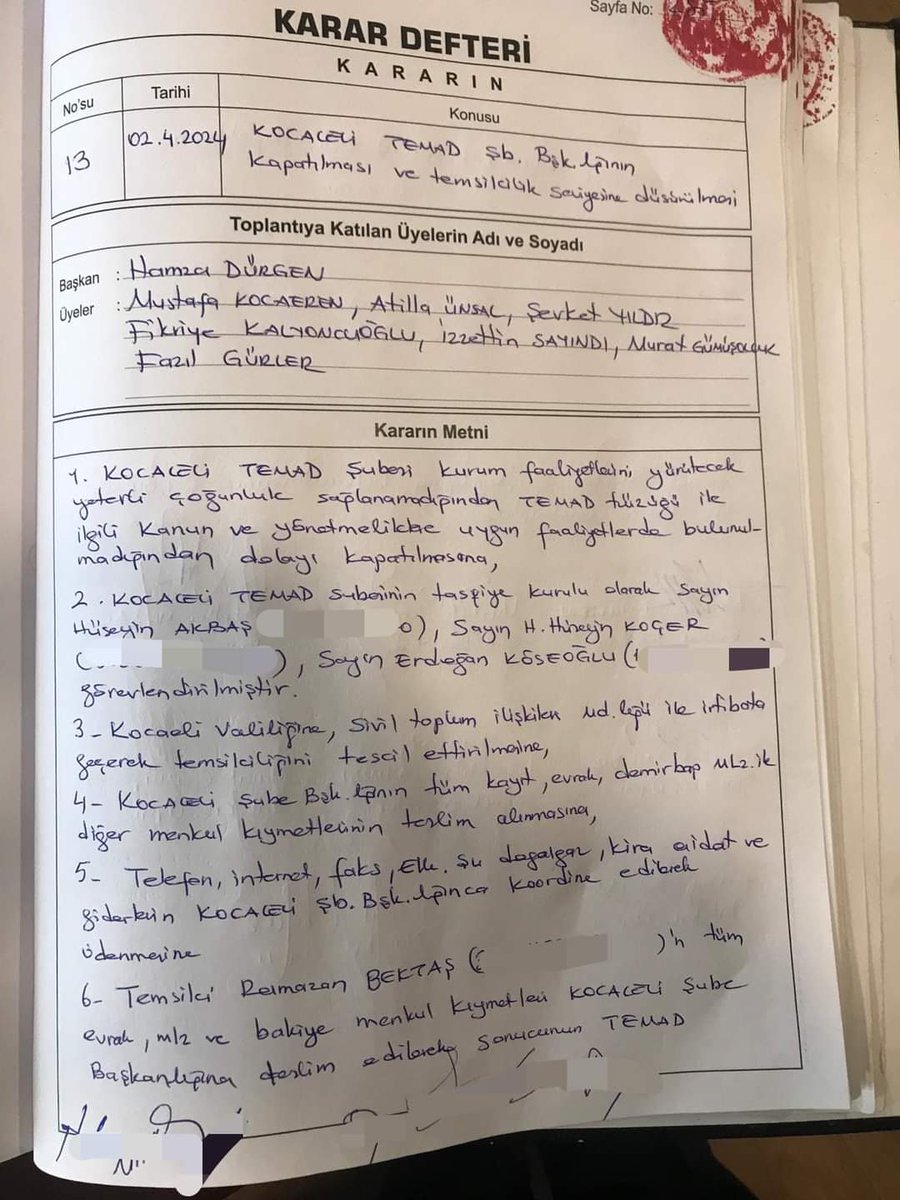 Sayfa No:
KARAR DEFTERİ
KARARIN
No'su
Tarihi
Konusu
13
02.4.2024
KOCAELİ TEMAD Şb. Bşk.lığının
Kapatılması ve temsilcilik seviyesine düşürülmesi
Toplantıya Katılan Üyelerin Adı ve Soyadı
Başkan : Hamza DÜRGEN
Üyeler : Mustafa KOCAEREN, Atilla ÜNSAL, Şevket YILDIZ
Fikriye KALYONCUOĞLU, İzzettin SAYINDI, Murat GÜMÜŞOLUK
Fazıl GÜRLER
Kararın Metni
1. KOCAELİ TEMAD Şubesi kurum faaliyetlerini yürütecek
yeterli çoğunluk sağlanamadığından TEMAD tüzüğü ile
ilgili Kanun ve yönetmelikte uygun faaliyetlerde bulunul-
madığından dolayı kapatılmasına,
2. KOCAELİ TEMAD Şubesinin tasfiye kurulu olarak Sayın
Hüseyin AKBAŞ o), Sayın H. Hüseyin KOÇER
( ), Sayın Erdoğan KÖSEOĞLU (1
görevlendirilmiştir.
3- Kocaeli Valiliğine, Sivil toplum ilişkiler Md.lüğü ile irtibata
geçerek temsilciliğini tescil ettirilmesine,
4- KOCAELİ Şube Bşk.lığının tüm kayıt, evrak, demirbaş Mlz. ile
diğer menkul kıymetlerinin teslim alınmasına,
5- Telefon, internet, faks, Elk. Su doğalgaz, kira aidat ve
giderlerin KOCAELİ Şb. Bşk.lığınca koordine edilerek
ödenmesine
6- Temsilci Ramazan BEKTAŞ ( )'ın tüm
evrak, mlz ve bakiye menkul kıymetleri KOCAELİ Şube
Başkanlığına teslim edilerek sonucunun TEMAD